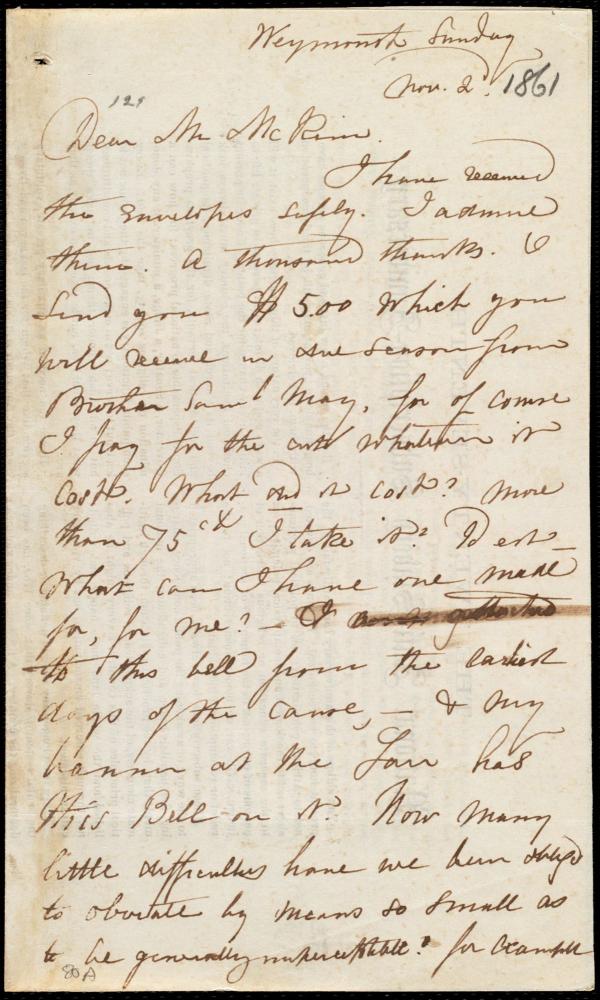 Weymouth Sunday
Nov. 2d. 1861
121
Dear Mr McKim.
I have received
the envelopes safely. I admire
them. A thousand thanks. I
send you $5.00 which you
will receive in due season from
Brother Saml May, for of course
I pay for the cuts whatever it
costs. What did it cost? more
than 75 cts I take it? Id est—
What can I have one made
for, for me? — I
to this bell from the earliest
days of the cause, — & my
banner at the Fair has
this Bell on it. How many
little difficulties have we been obliged
to obviate by means so small as
to be generally imperceptible! for example
80A